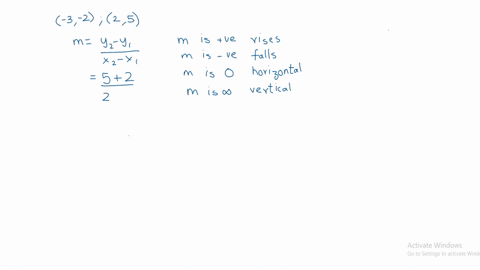 (-3,-2) ; (2,5)
m = y₂-y₁ / x₂-x₁
= 5+2 / 2
m is +ve rises
m is -ve falls
m is 0 horizontal
m is ∞ vertical
Activate Windows
Go to Settings to activate Windows